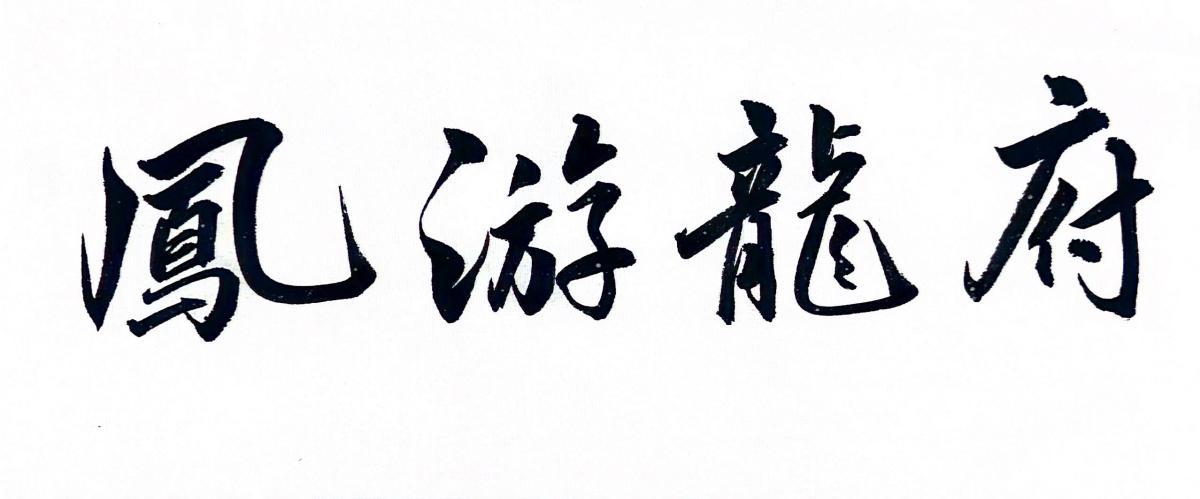 鳳游龍府